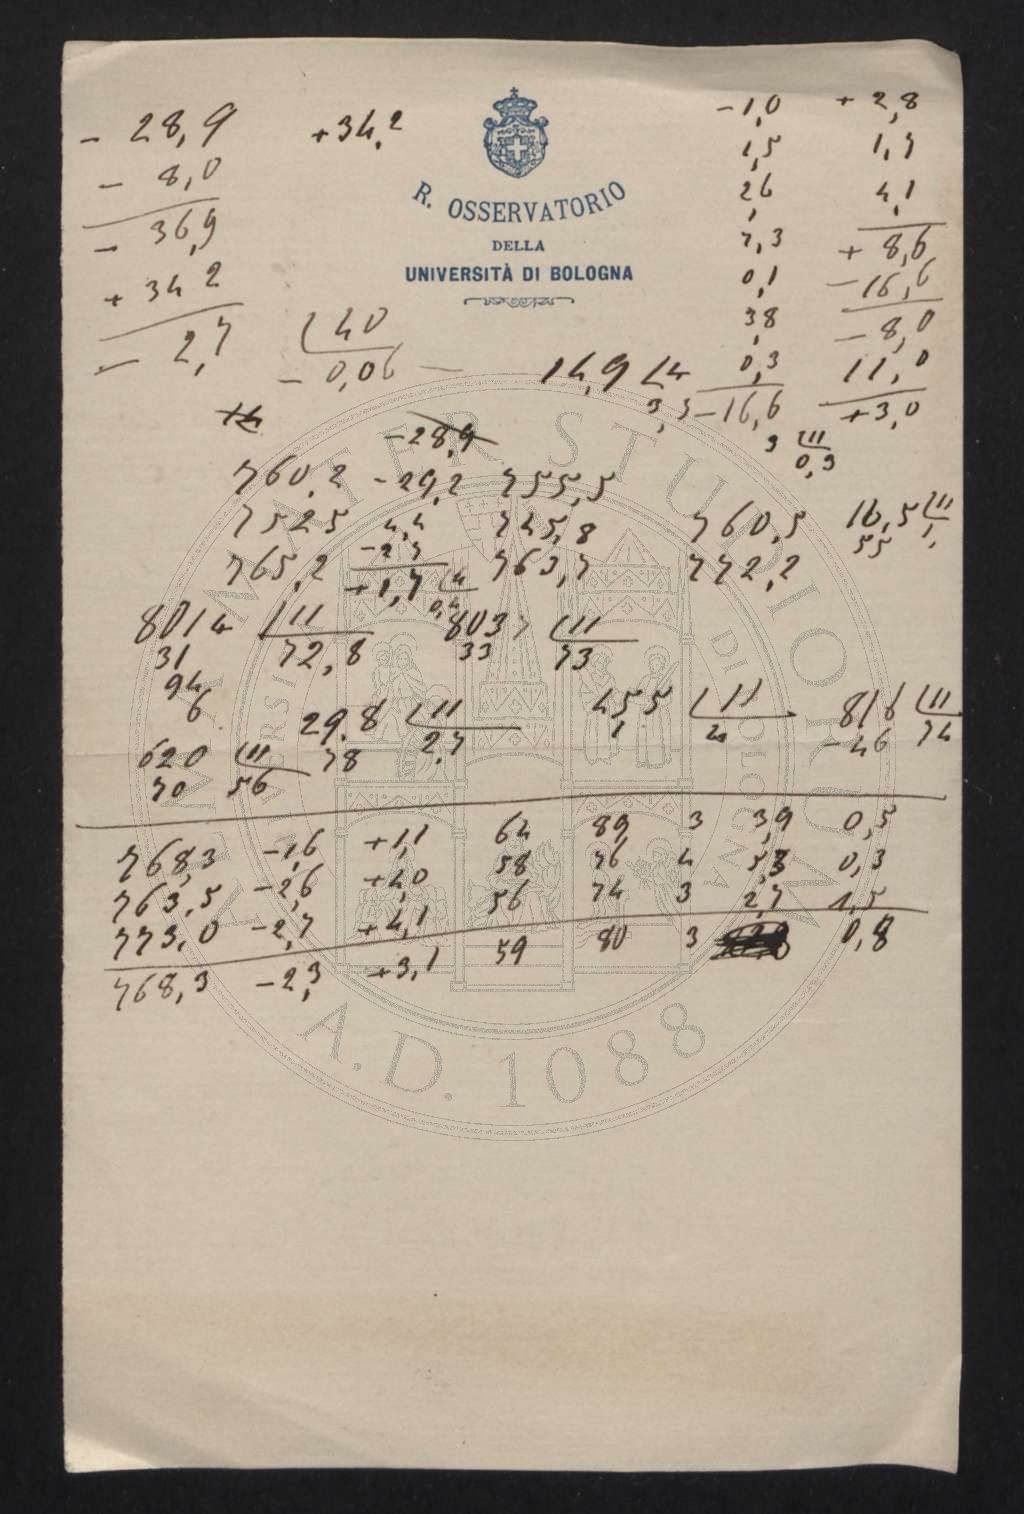 - 28,9 +34,2 -1,0 + 2,8
- 8,0 1,5 1,7
- 36,9 2,6 4,1
+ 34 2 7,3 + 8,6
- 2,7 40 0,1 - 16,6
- 0,06 3,8 - 8,0
14,9 4 0,3 11,0
3,3 -16,6 +3,0
3 11
0,3
R. OSSERVATORIO
DELLA
UNIVERSITÀ DI BOLOGNA
-28,9
760,2 -29,2 755,5
752 5 4,4 745,8 760,5 16,5 11
765,2 -2 7 763,7 772,2 55 1,
+1,7 4
0,4
801 4 11 803 11
31 72,8 33 73
94
6
29,8 11 455 11 816 11
78 2,7 1 4 -46 74
620 11
70 56
768,3 -1,6 +1,1 64 89, 3 3,9 0,5
763,5 -2,6 +4,0 58 76 4 5,3 0,3
773,0 -2,7 +4,1 56 74 3 2,7 1,5
768,3 -2,3 +3,1 59 80 3 0,8
ALMA MATER STUDIORUM
UNIVERSITÀ DI BOLOGNA
A.D. 1088